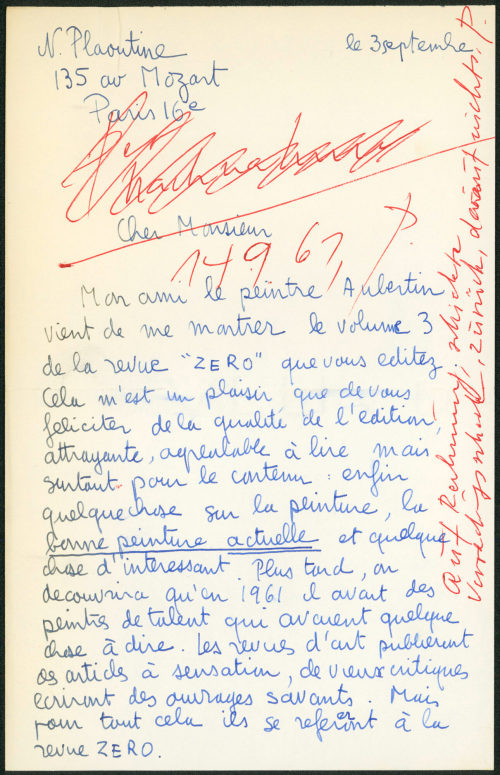 N. Plaoutine
le 3 septembre
135 av Mozart
Paris 16e
Cher Monsieur
14 9 61, P.
Mon ami le peintre Aubertin
vient de me montrer le volume 3
de la revue "ZERO" que vous editez
Cela m'est un plaisir que de vous
feliciter de la qualité de l'édition,
attrayante, agréalable à lire mais
surtout pour le contenu : enfin
quelque chose sur la peinture, la
bonne peinture actuelle et quelque
chose d'interessant. Plus tard, on
decouvrira qu'en 1961 il avait des
peintres de talent qui avaient quelque
chose à dire. Les revues d'art publieront
des articles à sensation, de vieux critiques
ecriront des ouvrages savants. Mais
pour tout cela ils se referont à la
revue ZERO.
auf Rechnung, schickte
zurück, darauf nichts, P.